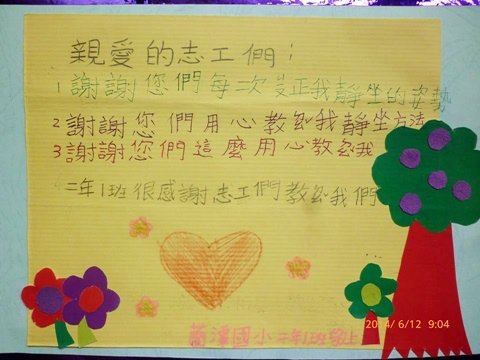 親愛的志工們：
1謝謝您們每次豈正我靜坐的姿勢
2謝謝您們用心教我靜坐方法
3謝謝您們這麼用心教我
二年1班很感謝志工們教我們
蘭潭國小二年1班敬上
2014/6/12 9:04